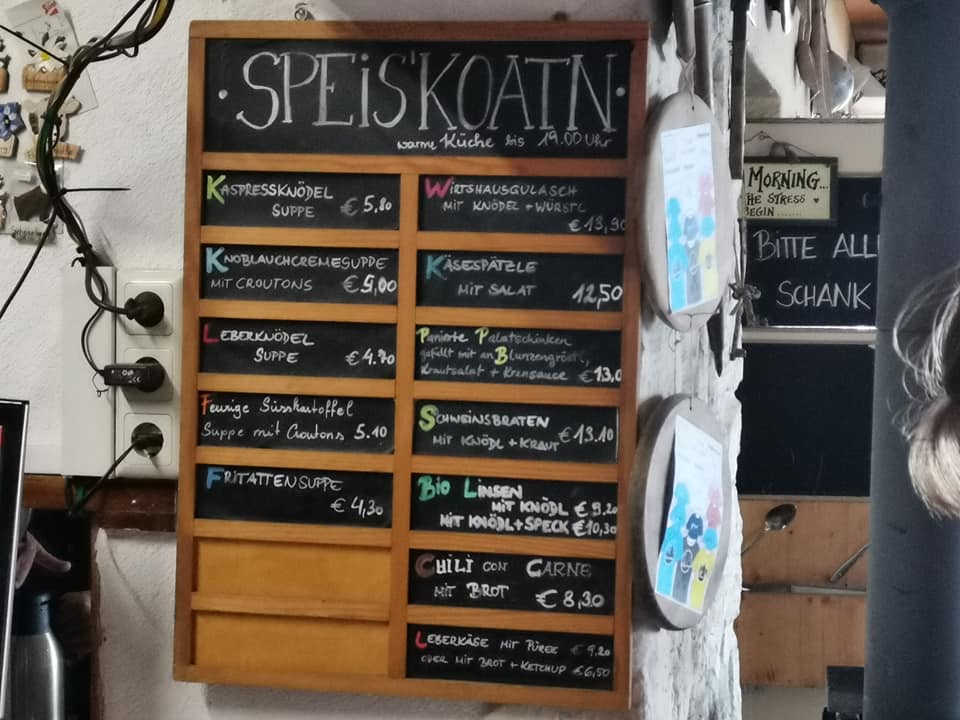 SPEiS'KOATN
warme Küche bis 19.00 Uhr
KASPRESSKNÖDEL
SUPPE €5,80
KNOBLAUCHCREMESUPPE
MIT CROUTONS €5,00
LEBERKNÖDEL
SUPPE €4.70
Feurige Süsskartoffel
Suppe mit Croutons 5.10
FRITATTENSUPPE
€ 4,30
WIRTSHAUSGULASCH
MIT KNÖDEL + WÜRSTL
€13,90
KÄSESPÄTZLE
MIT SALAT 12,50
Panierte Palatschinken
gefüllt mit an Blunzengröstl,
Krautsalat + Krensauce €13,0
SCHWEINSBRATEN
MIT KNÖDL + KRAUT €13.10
BiO LINSEN
MIT KNÖDL €9,20
MIT KNÖDL+SPECK €10,30
CHILI CON CARNE
MIT BROT €8,30
LEBERKÄSE MIT PÜREE €9,20
ODER MIT BROT + KETCHUP €6,50
MORNING...
HE STRESS
BEGIN .......
BITTE ALL
SCHANK